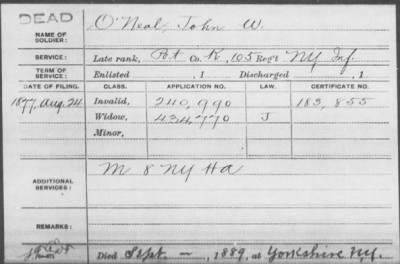 DEAD
NAME OF SOLDIER: O'Neal, John W.
SERVICE: Late rank, Pvt Co. K, 105 Reg't NY Inf.
TERM OF SERVICE: Enlisted , 1 Discharged , 1
DATE OF FILING. CLASS. APPLICATION NO. LAW. CERTIFICATE NO.
1877, Aug. 24 Invalid, 240,990 183,855
Widow, 434,770 J
Minor,
ADDITIONAL SERVICES: M 8 NY HA
REMARKS:
Died Sept. — , 1889, at Yorkshire N.Y.